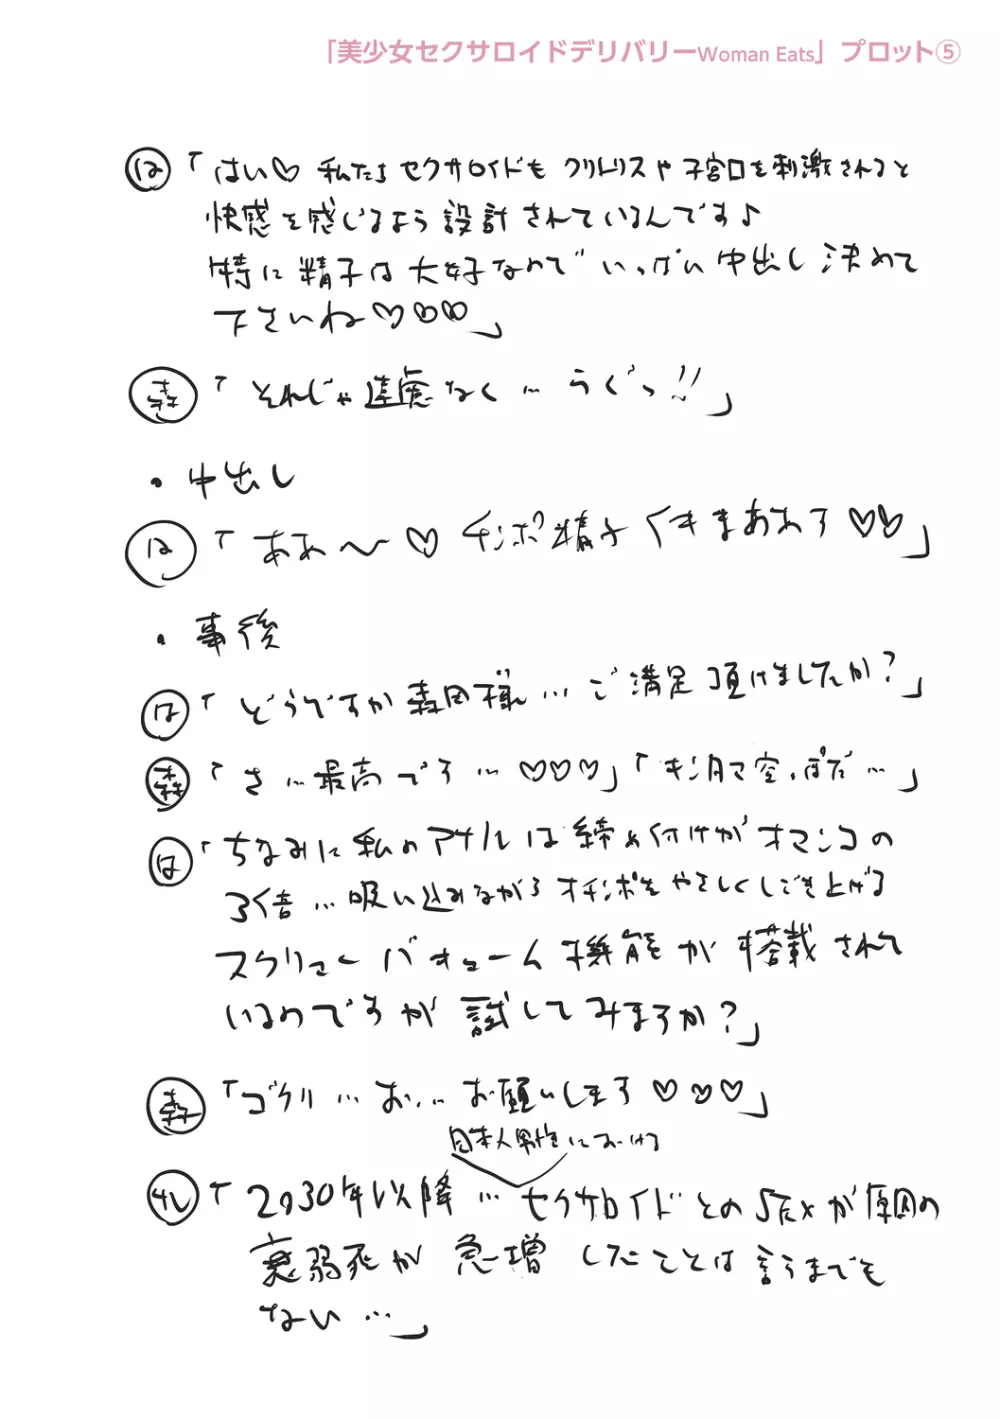 「美少女セクサロイドデリバリーWoman Eats」プロット⑤
は「はい♡ 私たちセクサロイドもクリトリスや子宮口を刺激されると
快感を感じるよう設計されているんです♪
特に精子は大好なので いっぱい中出し決めて
下さいね♡♡♡」
森「それじゃ遠慮なく…うぐっ!!」
・中出し
は「ああ〜♡ チンポ精子くきまあああす♡♡」
・事後
は「どうですか森田様…ご満足頂けましたか?」
森「さ…最高です…♡♡♡」「キンタマ空っぽだ…」
は「ちなみに私のアナルは締め付けがオマンコの
3倍…吸い込みながらオチンポをやさしくしごき上げる
スクリューバキューム機能が搭載されて
いるのですが試してみますか?」
森「ゴクリ…お…お願いします♡♡♡」
日本人男性における
ナレ「2030年以降…セクサロイドとのSEXが原因の
衰弱死が急増したことは言うまでも
ない…」